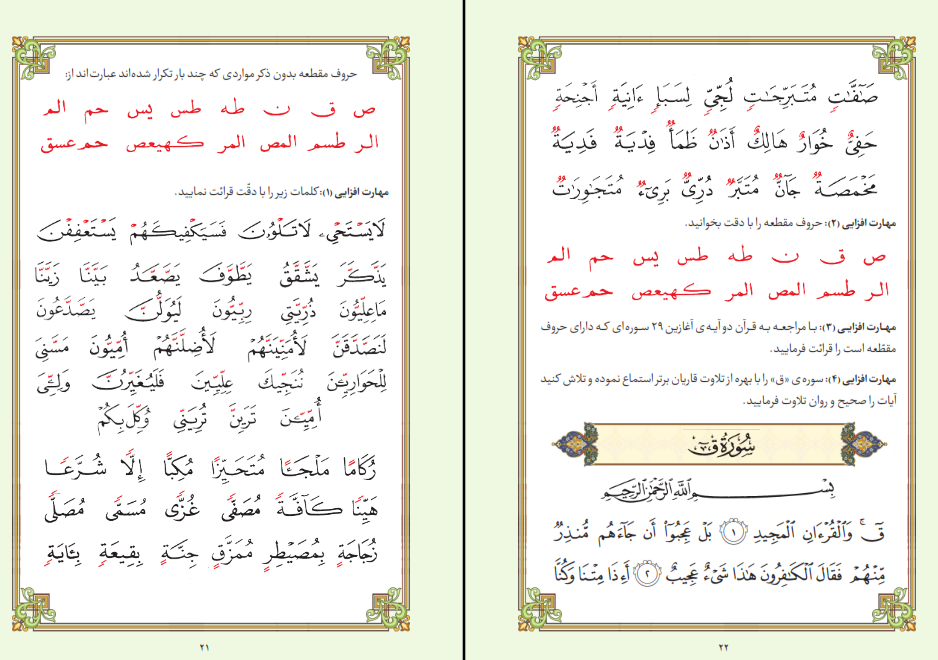 حروف مقطعه بدون ذکر مواردی که چند بار تکرار شده‌اند عبارت‌اند از:
ص ق ن طه طس یس حم الم
الر طسم المص المر کهیعص حم عسق
مهارت افزایی (۱): کلمات زیر را با دقّت قرائت نمایید.
لَايَسْتَحْيِۦ لَاتَلْوُۥنَ فَسَيَكْفِيكَهُمْ يَسْتَعْفِفْنَ
يَذَّكَّرَ يَشَّقَّقُ يَطَّوَّفَ يَصَّعَّدُ بَيَّنَّا زَيَّنَّا
مَاعِلِّيُّونَ ذُرِّيَّتِي رِبِّيُّونَ لَيُوَلُّنَّ يَصَّدَّعُونَ
لَنَصَّدَّقَنَّ لَأُمَنِّيَنَّهُمْ لَأُضِلَّنَّهُمْ أُمِّيُّونَ مَسَّنِيَ
لِلْحَوَارِيِّۧنَ نُنَجِّيكَ عِلِّيِّينَ فَلَيُغَيِّرُنَّ وَلِـِّۧيَ
أُمِّيِّـۧنَ تَرَيِنَّ تُرِيَنِّي وُكِّلَ بِكُمْ
رُكَامًا مَلْجَـًٔا مُتَحَيِّزًا مُكِبًّا إِلًّا شُرَّعًا
هَيِّنًا كَآفَّةً مُصَفًّى غُزًّى مُسَمًّى مُصَلًّى
زُجَاجَةٍ بِمُصَيْطِرٍ مُمَزَّقٍ جِنَّةٍ بِقِيعَةٍ بِـَٔايَةٍ
۲۱
صَـٰٓفَّـٰتٍ مُتَبَرِّجَـٰتٍ لُجِّيٍّ لِسَبَإٍ ءَانِيَةٍ أَجْنِحَةٍ
حَفِيٌّ خُوَارٌ هَالِكٌ أَذَانٌ ظَمَأٌ فِدْيَةٌ فَدِيَةٌ
مَخْمَصَةٌ جَآنٌّ مُتَبَّرٌ دُرِّيٌّ بَرِيٓءٌ مُتَجَـٰوِرَٰتٌ
مهارت افزایی (۲): حروف مقطعه را با دقت بخوانید.
ص ق ن طه طس یس حم الم
الر طسم المص المر کهیعص حم عسق
مهارت افزایی (۳): با مراجعه به قرآن دو آیه‌ی آغازین ۲۹ سوره‌ای که دارای حروف
مقطّعه است را قرائت فرمایید.
مهارت افزایی (۴): سوره‌ی «ق» را با بهره از تلاوت قاریان برتر استماع نموده و تلاش کنید
آیات را صحیح و روان تلاوت فرمایید.
سُورَةُ ق
بِسْمِ ٱللَّهِ ٱلرَّحْمَٰنِ ٱلرَّحِيمِ
قٓ ۚ وَٱلْقُرْءَانِ ٱلْمَجِيدِ ۝١ بَلْ عَجِبُوٓا۟ أَن جَآءَهُم مُّنذِرٌ
مِّنْهُمْ فَقَالَ ٱلْكَـٰفِرُونَ هَـٰذَا شَىْءٌ عَجِيبٌ ۝٢ أَءِذَا مِتْنَا وَكُنَّا
۲۲